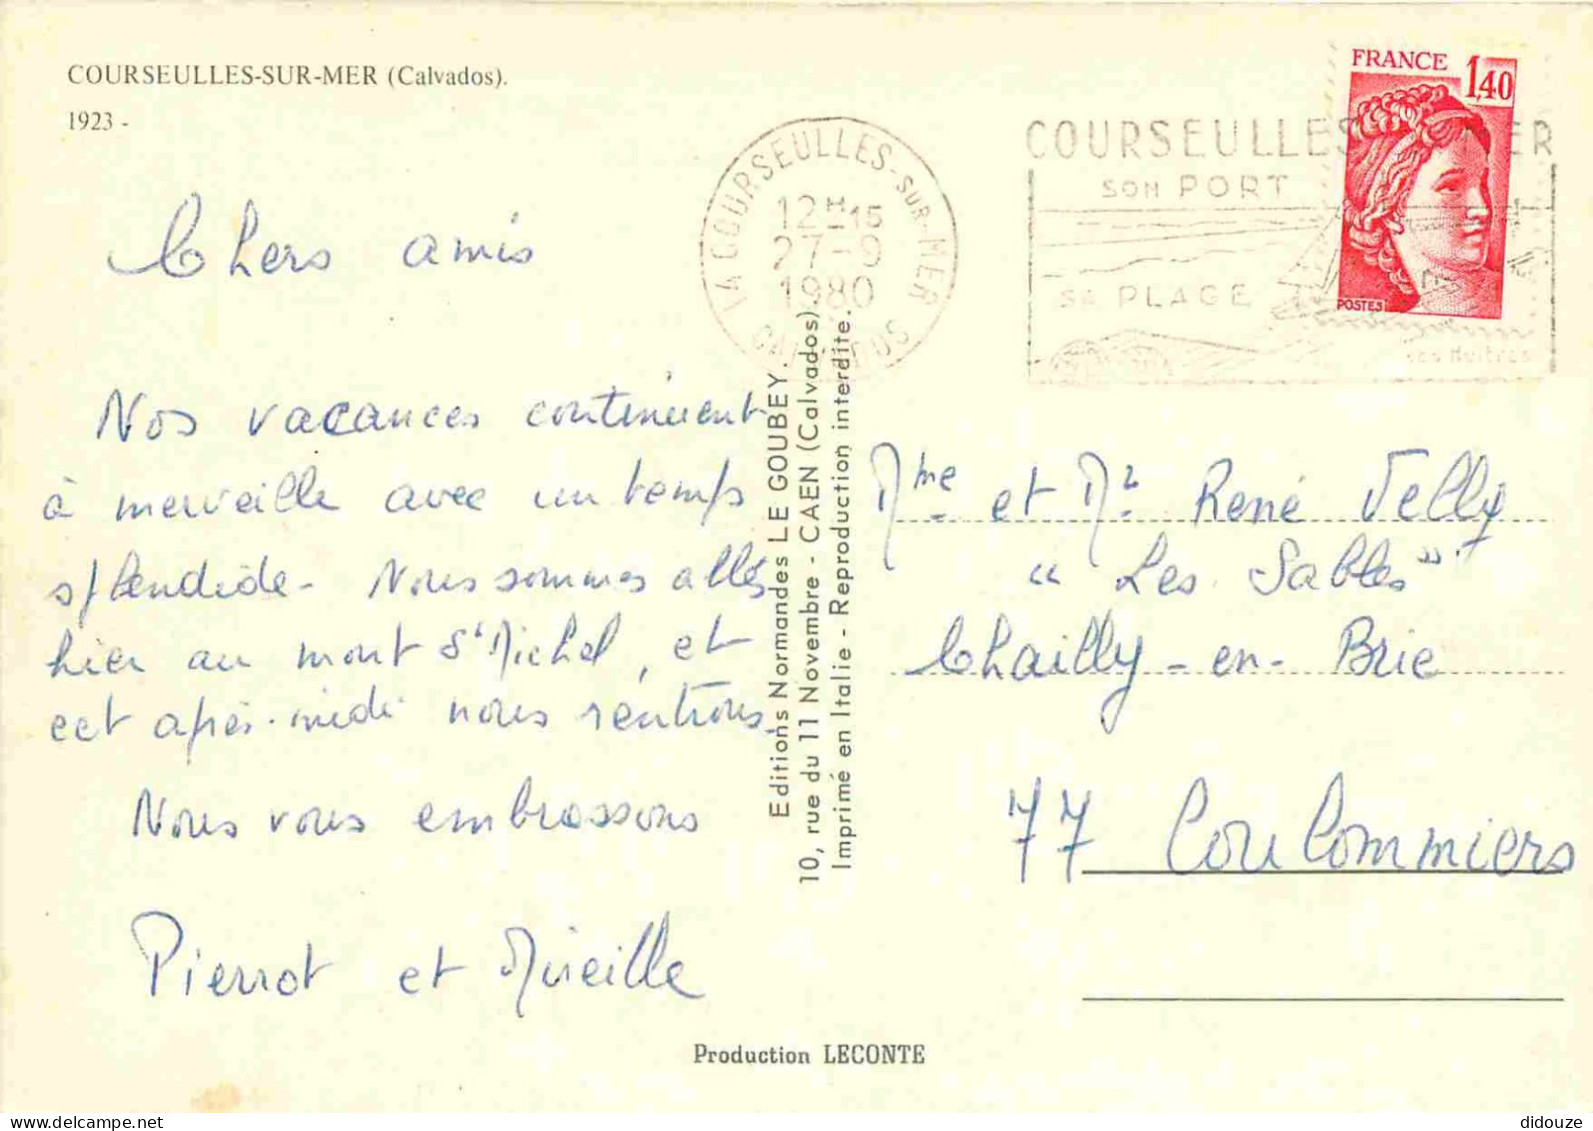 COURSEULLES-SUR-MER (Calvados).
1923 -
FRANCE 1,40
POSTES
14 COURSEULLES-SUR-MER
12H15
27-9
1980
CALVADOS
COURSEULLES MER
SON PORT
SA PLAGE
ses Huîtres
Chers amis
Nos vacances continuent
à merveille avec un temps
splendide - Nous sommes allés
hier au mont St Michel, et
cet après-midi nous rentrons.
Nous vous embrassons
Pierrot et Mireille
Editions Normandes LE GOUBEY.
10, rue du 11 Novembre - CAEN (Calvados).
Imprimé en Italie - Reproduction interdite.
Mme et Mr René Velly
"Les Sables".
Chailly-en-Brie
77 Coulommiers
Production LECONTE
didouze